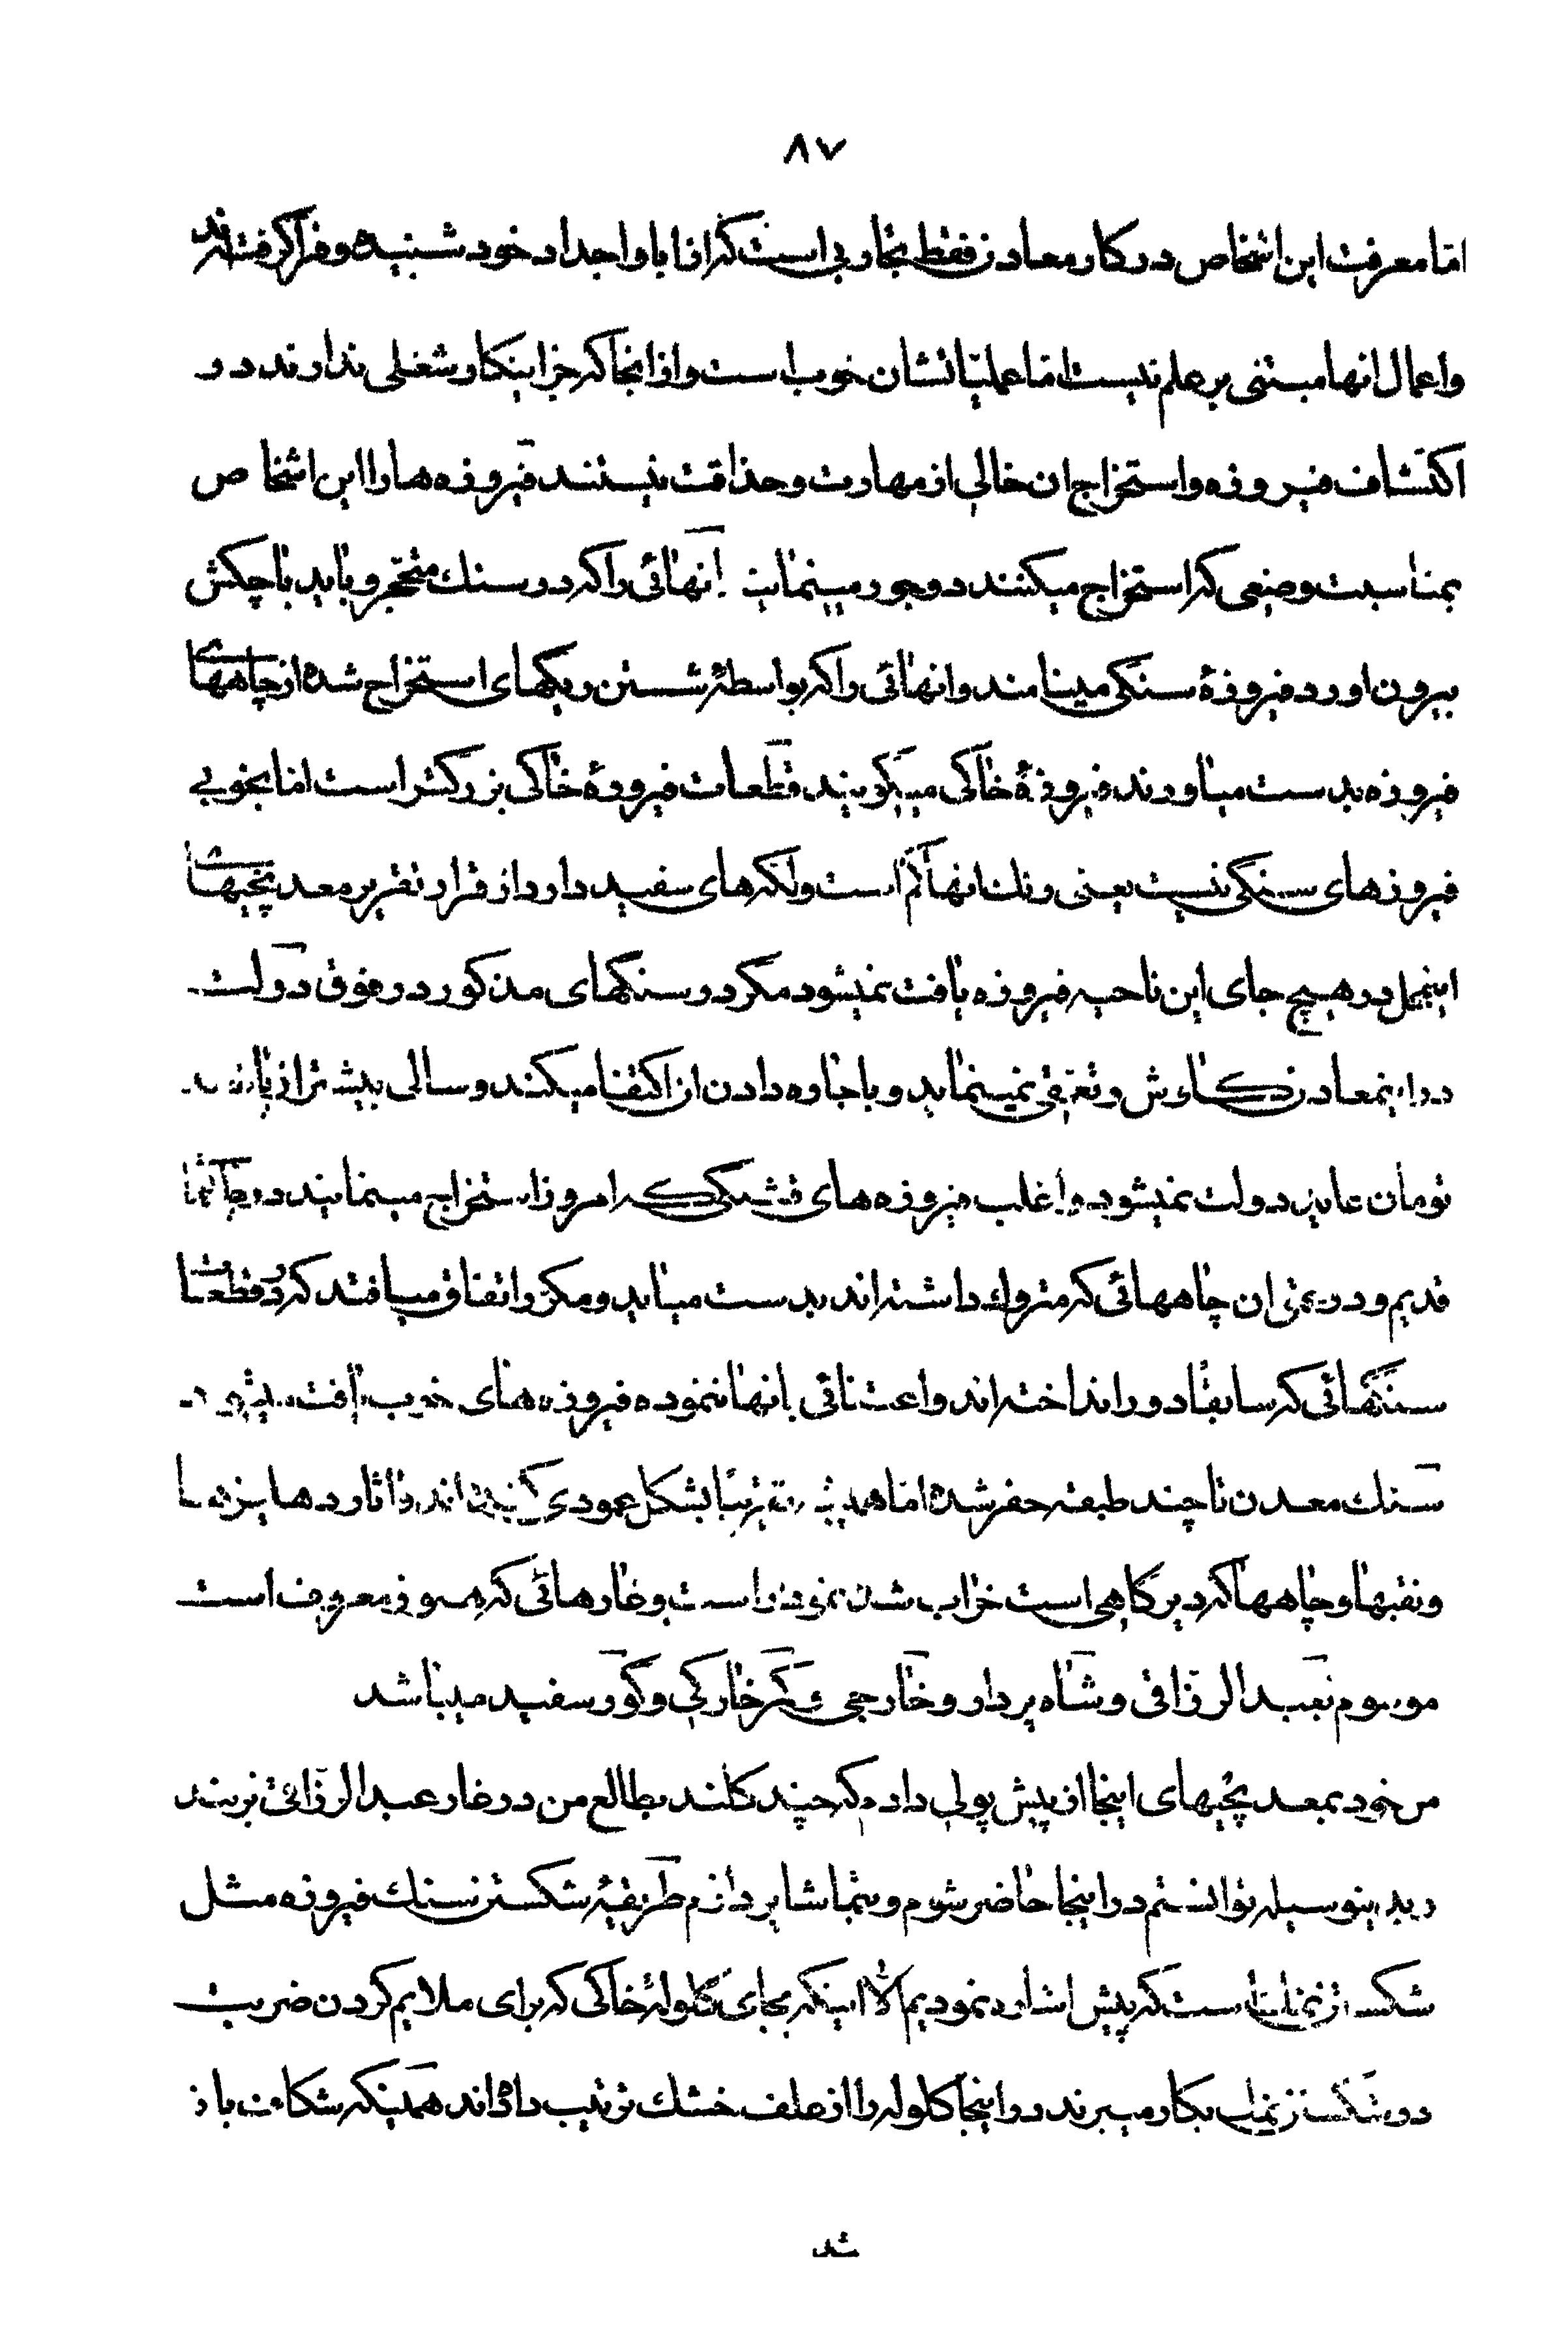 ۸۷
امّا معرفت این اشخاص در کار معادن فقط تجاربی است که از ابا و اجداد خود شنیده و فرا گرفته‌اند
و اعمال انها مبتنی بر علم نیست امّا عملیّاتشان خوب است و از انجا که جز اینکار شغلی ندارند در
اکتشاف فیروزه و استخراج ان خالی از مهارت و حذاقت نیستند فیروزه ها را این اشخاص
بمناسبت وضعی که استخراج میکنند دو جور مینمایند انهائی را که در سنك متحجّر و باید با چکش
بیرون اورد فیروزۀ سنگی مینامند و انهائی را که بواسطۀ شستن ریگهای استخراج شده از چاههای
فیروزه بدست میاورند فیروزۀ خاکی میگویند قطعات فیروزۀ خاکی بزرگتر است امّا بخوبی
فیروزهای سنگی نیست یعنی رنك انها کم است و لکه‌های سفید دارد از قرار تقریر معدنچیهای
اینمحل در هیچ جای این ناحیه فیروزه یافت نمیشود مگر در سنگهای مذکور در فوق دولت
در اینمعادن کاوش و تعمّقی نمینماید و باجاره دادن ان اکتفا میکند و سالی بیشتر از
تومان عاید دولت نمیشود و اغلب فیروزه های قشنگی که امروز استخراج مینمایند در چاههای
قدیم و در ان چاههائی که متروك داشته‌اند بدست میاید و مکرّر اتفاق میافتد که در قطعات
سنگهائی که سابقاً دور انداخته‌اند و اعتنائی بانها ننموده فیروزه های خوب یافت میشود
سنك معدن تا چند طبقه حفر شده امّا همیشه تقریباً بشکل عمودی کنده‌اند و اثار دهلیزها
و نقبها و چاهها که دیرگاهی است خراب شده نمودار است و غارهائی که هنوز معروف است
موسوم بعبدالرزاقی و شاه پردار و خارجی و کمر خارکی و گور سفید میباشد
من خود بمعدنچیهای اینجا از پیش پولی دادم که چند کلند بطالع من در غار عبدالرزاقی بزنند
و بدینوسیله توانستم در اینجا حاضر شوم و بتماشا پردازم طریقۀ شکستن سنك فیروزه مثل
شکستن است که پیش اشاره نمودیم الاّ اینکه بجای گلولۀ خاکی که برای ملایم کردن ضربت
در شکستن بکار میبرند در اینجا گلوله را از علف خشك ترتیب داده‌اند همینکه شکافت باز
شد